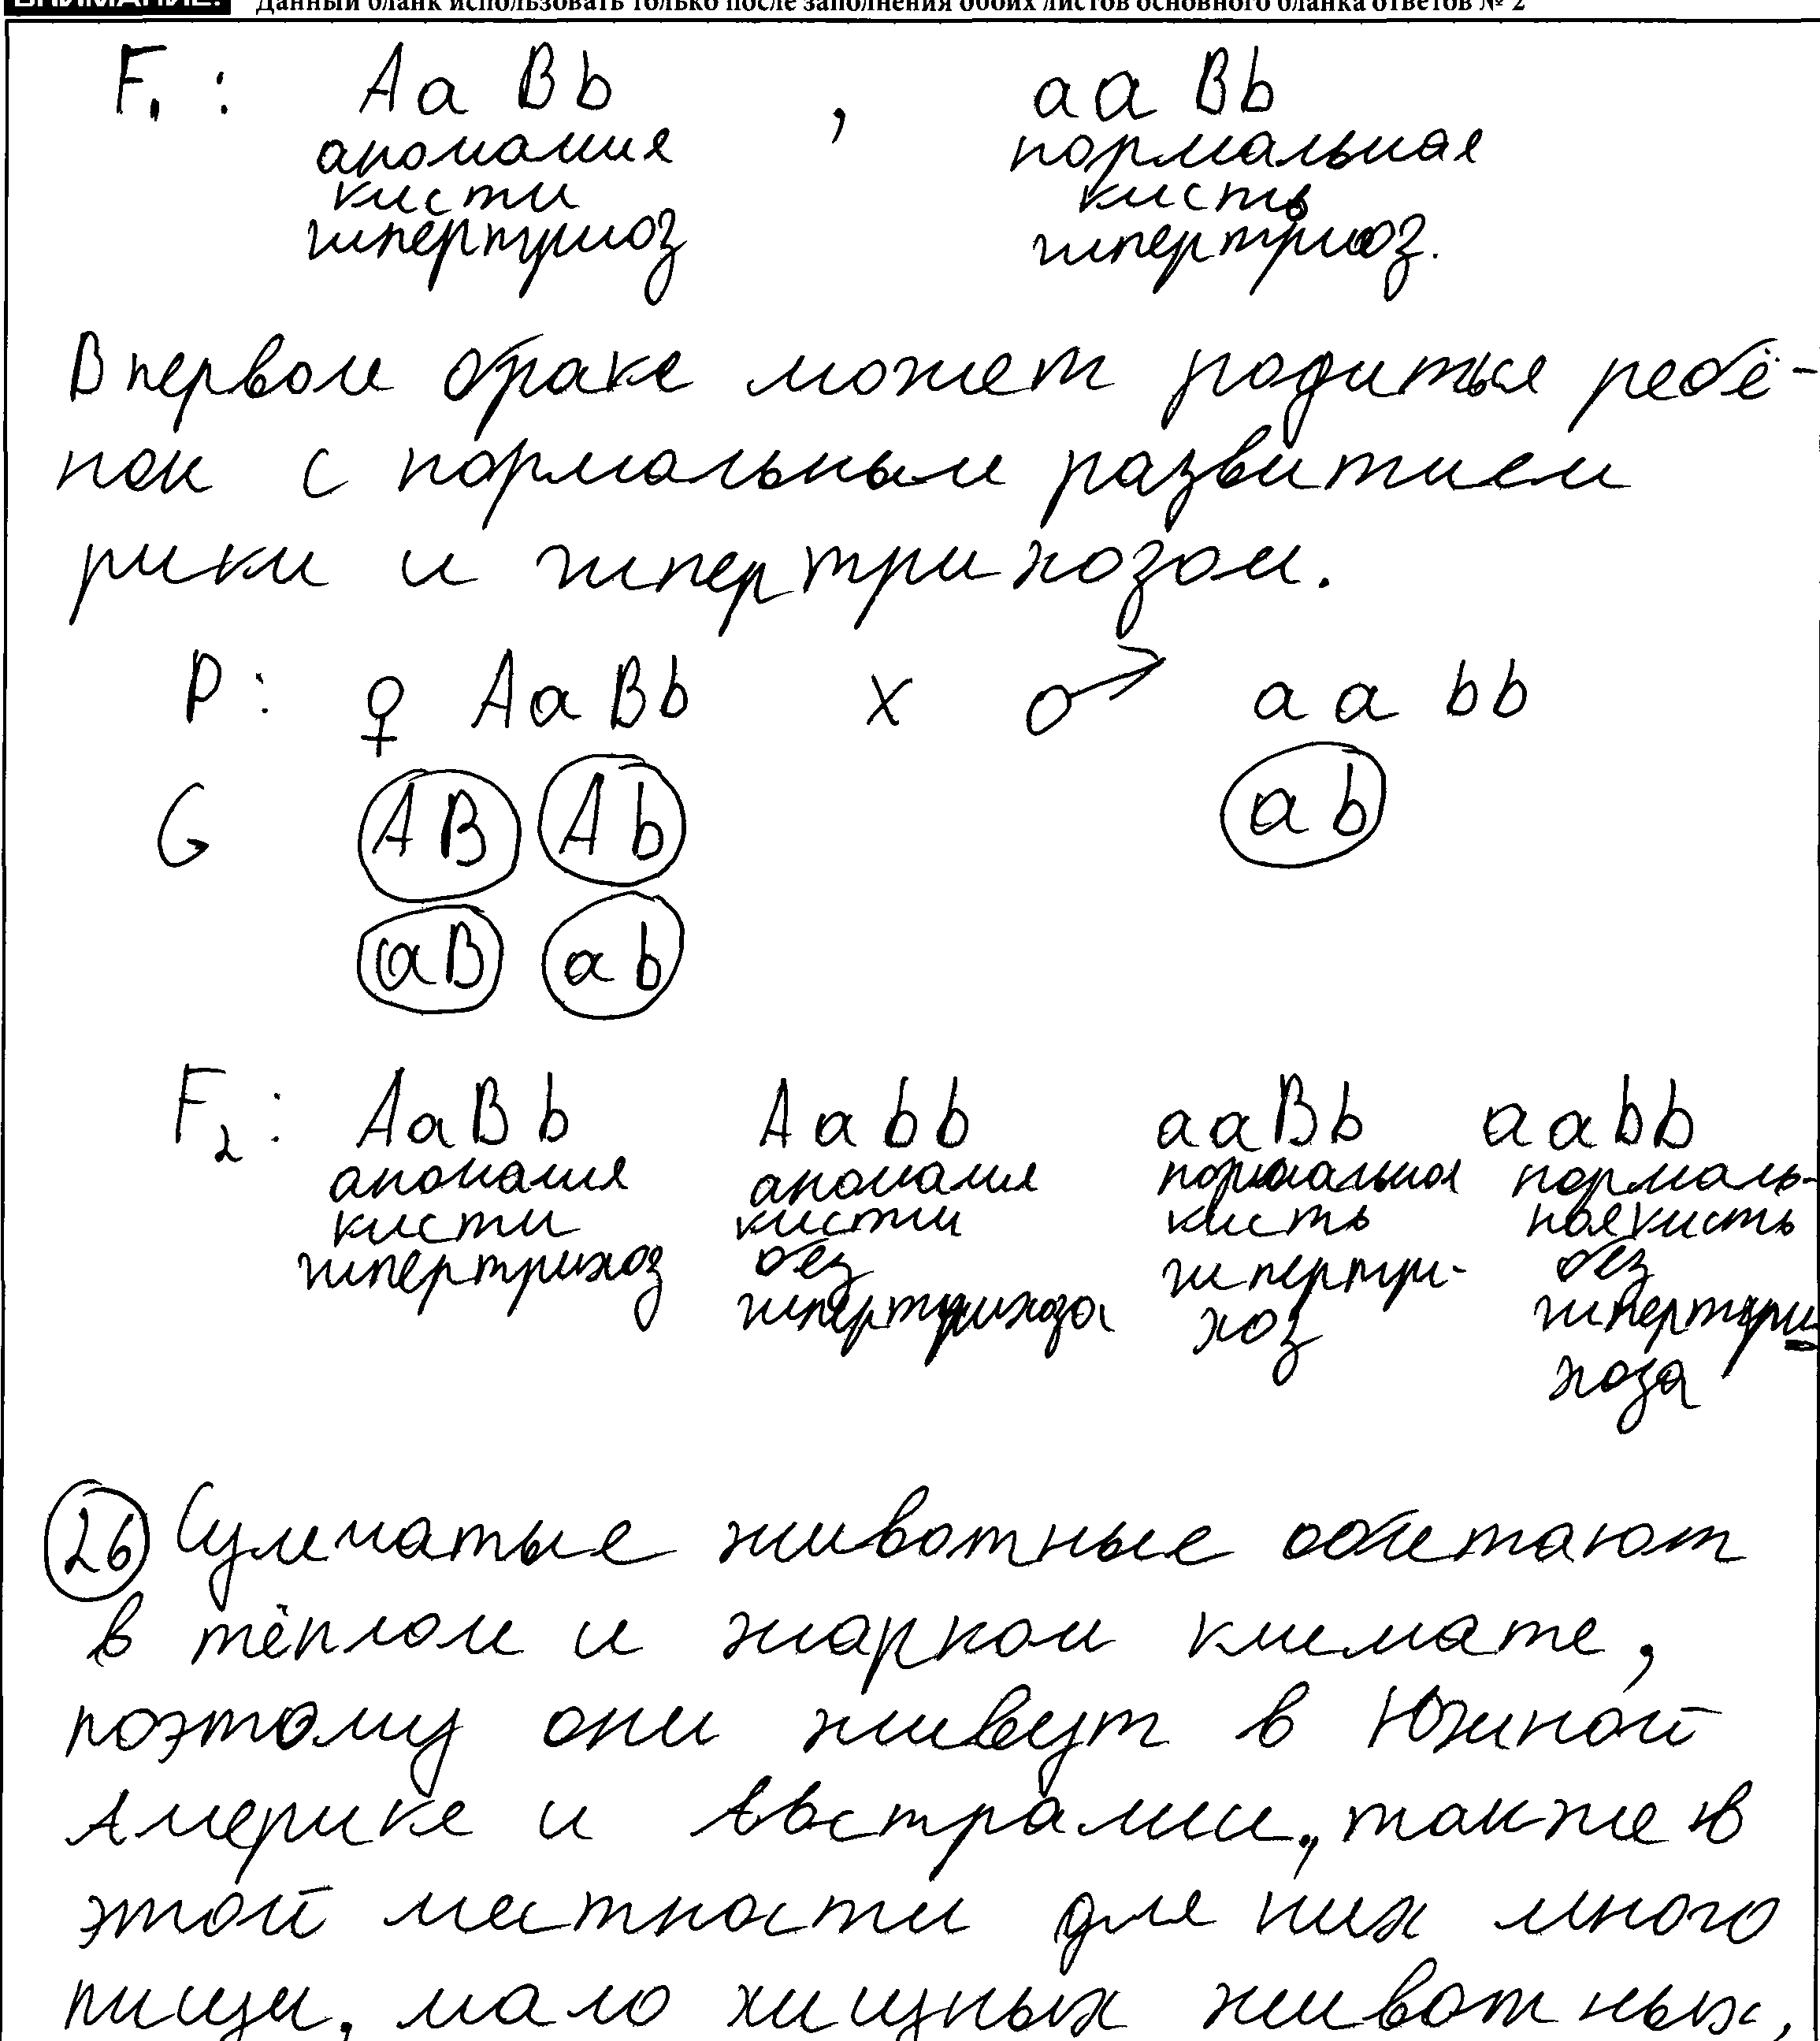 ВНИМАНИЕ! Данный бланк использовать только после заполнения обоих листов основного бланка ответов № 2
F₁ : Aa Bb , aa Bb
аномалия нормальная
кисти кисть
гипертриоз гипертриоз.
В первом браке может родиться ребё-
нок с нормальным развитием
руки и гипертрихозом.
P: ♀ AaBb x ♂ aa bb
G AB Ab ab
aB ab
F₂: AaBb Aabb aaBb aabb
аномалия аномалия нормальная нормаль-
кисти кисти кисть ная кисть
гипертрихоз без гипертри- без
гипертрихоза хоз гипертри
хоза
26 Сумчатые животные обитают
в тёплом и жарком климате,
поэтому они живут в Южной
Америке и Австралии, также в
этой местности для них много
пищи, мало хищных животных,